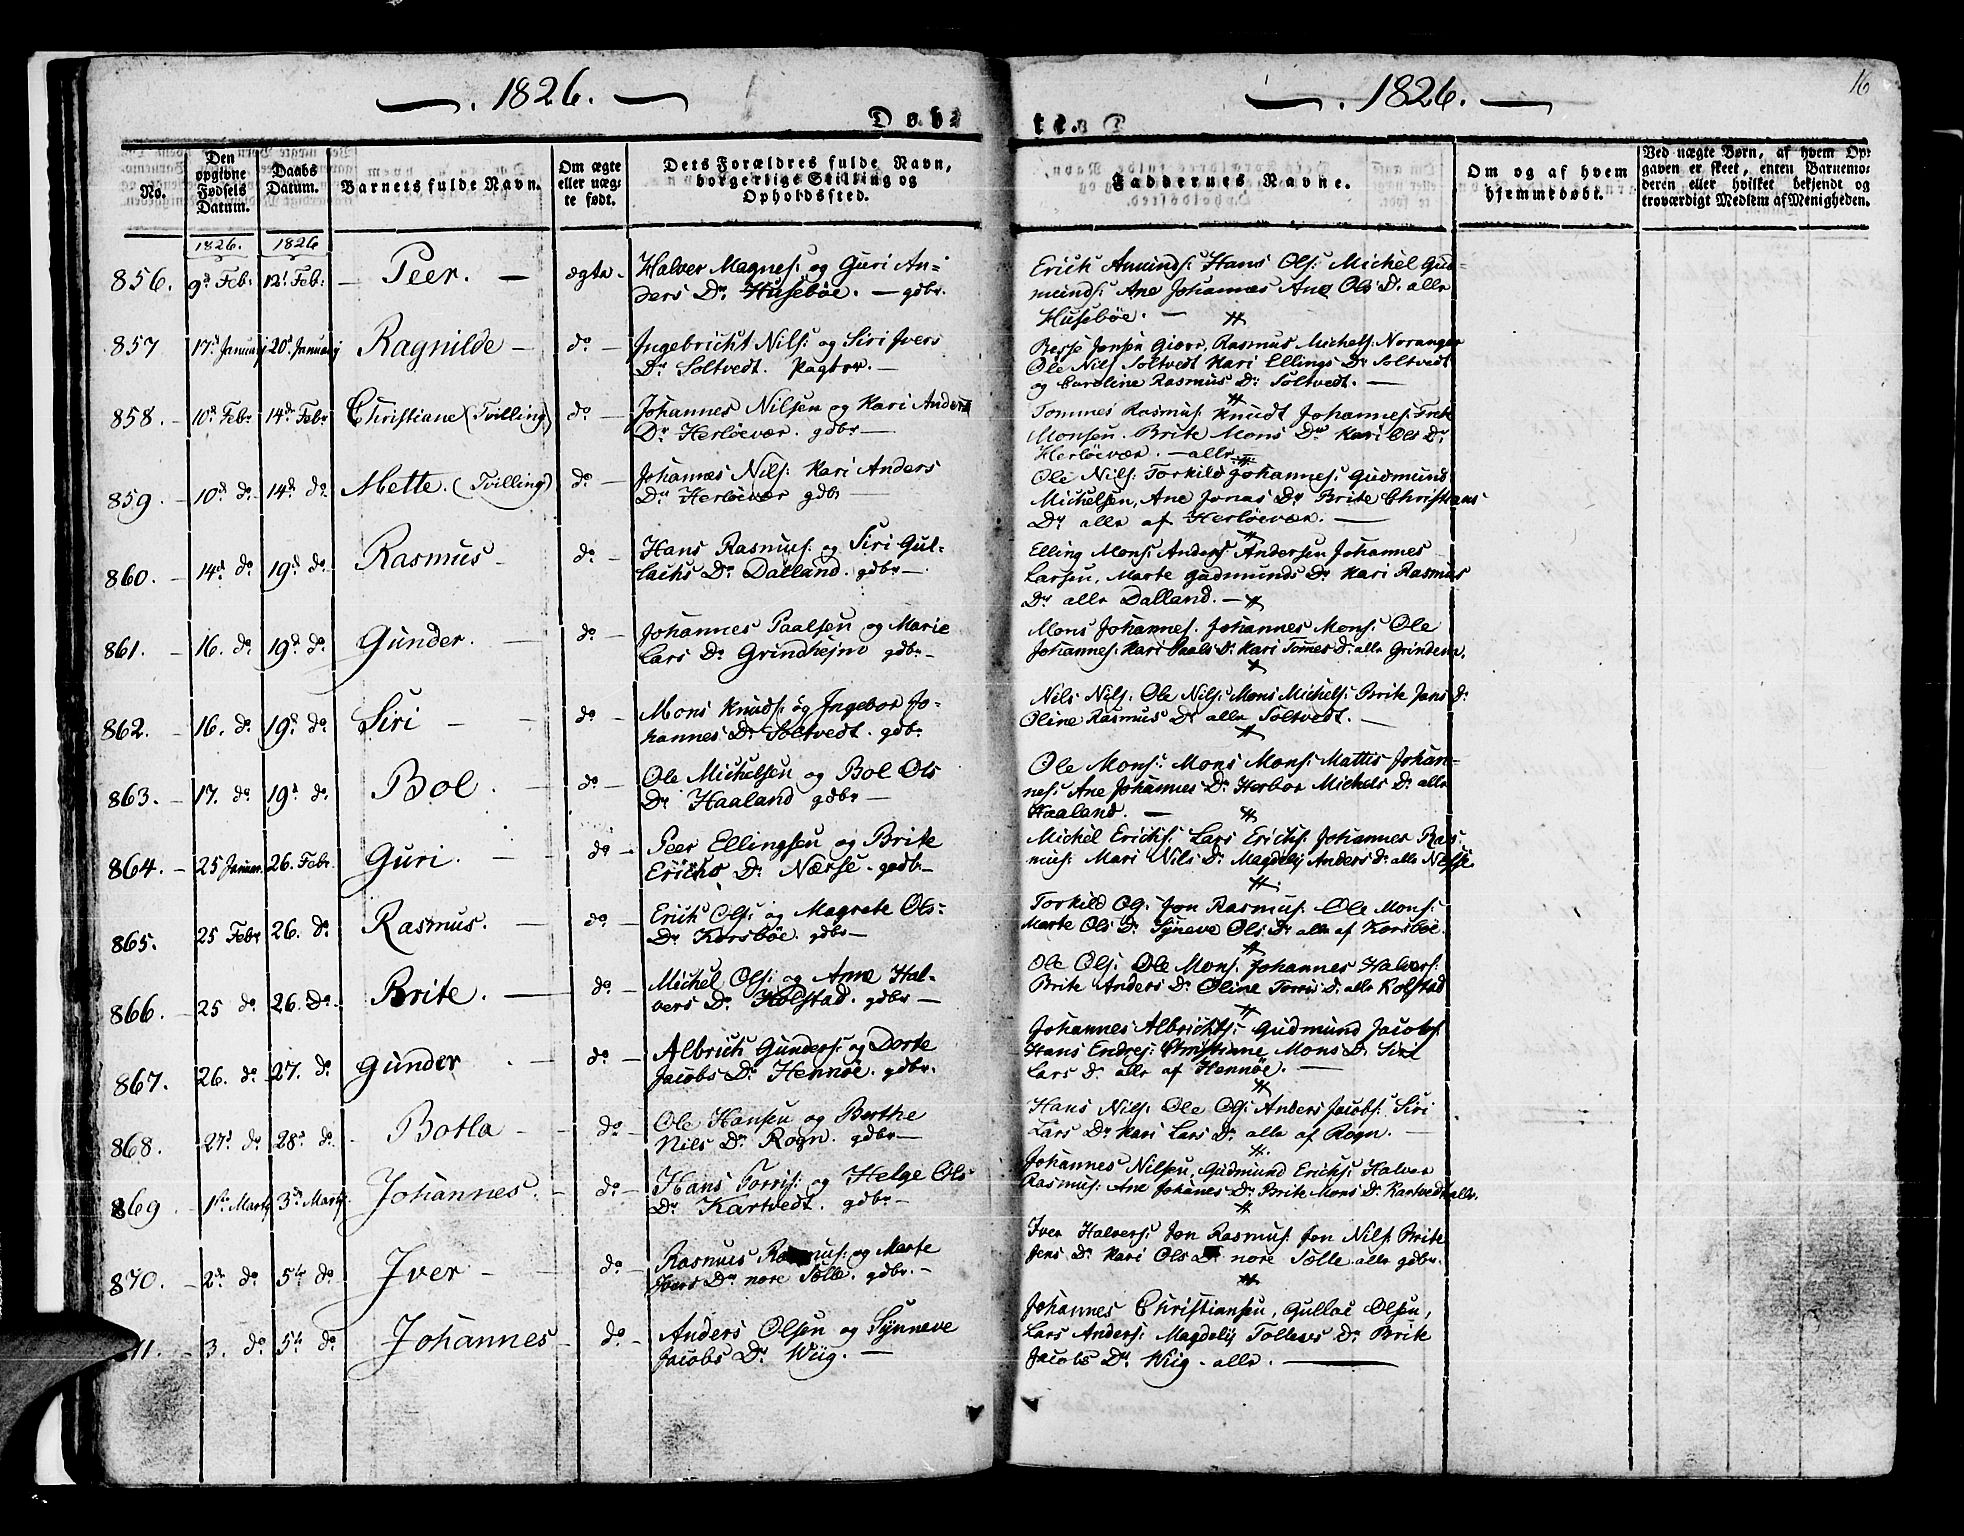 1826.
1826.
16
Døbte.
No.
Den opgivne Fødsels Datum.
Daabs Datum.
Barnets fulde Navn.
Om ægte eller uægte født.
Dets Forældres fulde Navn, borgerlige Stilling og Opholdssted.
Faddernes Navne.
Om og af hvem hjemmedøbt.
Ved uægte Børn, af hvem Opgaven er skeet, enten Barnemoderen eller hvilket bekjendt og troværdigt Medlem af Menigheden.
1826. 1826
856. 9d Feb: 12t Feb: Peer. ægta Halver Magnes: og Guri An=
ders Dr Husebøe. gdbr.
Erich Amunds: Hans Ols: Michel Gud=
munds: Ane Johannes Ane Ols D. alle
Husebøe.
857 17d January 20d January Ragnilde do Ingebricht Nils: og Siri Ivers
Dr Soltvedt.
Jensen Giøre, Rasmus Michels: Noranger
Ole Nils Soltvedt Kari Ellings Dr Soltvedt
og Caroline Rasmus Dr Soltvedt.
858. 10d Febr 14de Febr Christiane (Tvilling) do Johannes Nilsen og Kari Anders
Dr Herløevær. gdbr
Tommes Rasmus: Knudt Johannes:
Monsen. Brite Mons Dr Kari Ols Dr
Herløevær. alle
859. 10d do 14d do Mette. (Tvilling) do Johannes Nils: Kari Anders
Dr Herløevær gdbr
Ole Nils: Torkild Johannes: Gudmund
Michelsen, Ane Jonas Dr Brite Christians
Dr alle af Herløevær.
860. 14d do 19d do Rasmus do Hans Rasmus: og Siri Gul-
lachs Dr Dalland. gdbr
Elling Mons: Anders Andersen Johannes
Larsen, Marte Gudmunds Dr Kari Rasmus
Dr alle Dalland.
861. 16. do 19d do Gunder. do Johannes Paalsen og Marie
Lars Dr Grindhejm gdbr
Mons Johannes. Johannes Mons: Ole
Johannes: Kari Paals Dr Kari Tomes D: alle Grindem.
862. 16. do 19d do Siri do Mons Knuds: og Ingebor Jo-
hannes Dr Soltvedt. gdbr
Nils Nils: Ole Nils: Mons Michels: Brite Jans D:
Oline Rasmus Dr alle Soltvedt.
863. 17. do 19d do Bol. do Ole Michelsen og Bol Ols
Dr Haaland gdbr
Ole Mons: Mons Mons: Mattis Johan-
nes: Ane Johannes Dr Herbor Michels D: alle
Haaland.
864. 25 Januar. 26. Febr. Guri. do Peer Ellingsen og Brite
Erichs Dr Nærse. gdbr
Michel Erichs: Lars Erichs: Johannes Ras-
mus: Mari Nils Dr Magdelij Anders Dr alle
865. 25 Febr 26. do Rasmus. do Erich Ols: og Magrete Ols:
Dr Korsbøe. gdbr
Torkild Ols: Jon Rasmus: Ole Mons:
Marte Ols Dr Syneve Ols Dr alle af Korsbøe.
866. 25 do 26. Do. Brite. do Michel Ols: og Anne Hal-
vers Dr Kolstad. gdbr
Ole Ols: Ole Mons: Johannes Halvers:
Brite Anders Dr Oline Torris D: alle Kolstad
867. 26. do 27. do Gunder do Albrich Gunders: og Dorte
Jacobs Dr Hennøe. gdbr.
Johannes Albrichts: Gudmund Jacobs:
Hans Endres: Christiane Mons D: Siri
Lars D: alle af Hennøe.
868. 27d do 28d do Botla do Ole Hansen og Berthe
Nils Dr Rogn. gdbr
Hans Nils: Ole Ols: Anders Jacobs: Siri
Lars Dr Kari Lars Dr alle af Rogn.
869 1ste Martj 3de Martj. Johannes. do Hans Torris: og Helge Ols
Dr Kartvedt. gdbr
Johannes Nilsen, Gudmund Erichs: Halver
Rasmus: Ane Johanes Dr Brite Mons D: Kartvedt alle.
870. 2de do 5te do Iver do Rasmus Rasmus: og Marte
Ivers Dr nore Tolle. gdbr.
Iver Halvers: Jon Rasmus: Jon Nils: Brite
Jens Dr Kari Ols Dr nore Tolle alle gdbr.
3. do 5te do Johannes do Anders Olsen og Synneve
Jacobs Dr Wiig.
Johannes Christiansen, Gulloe Olsen,
Lars Anders: Magdelij Tolleves Dr Brite
Jacobs Dr Wiig. alle.